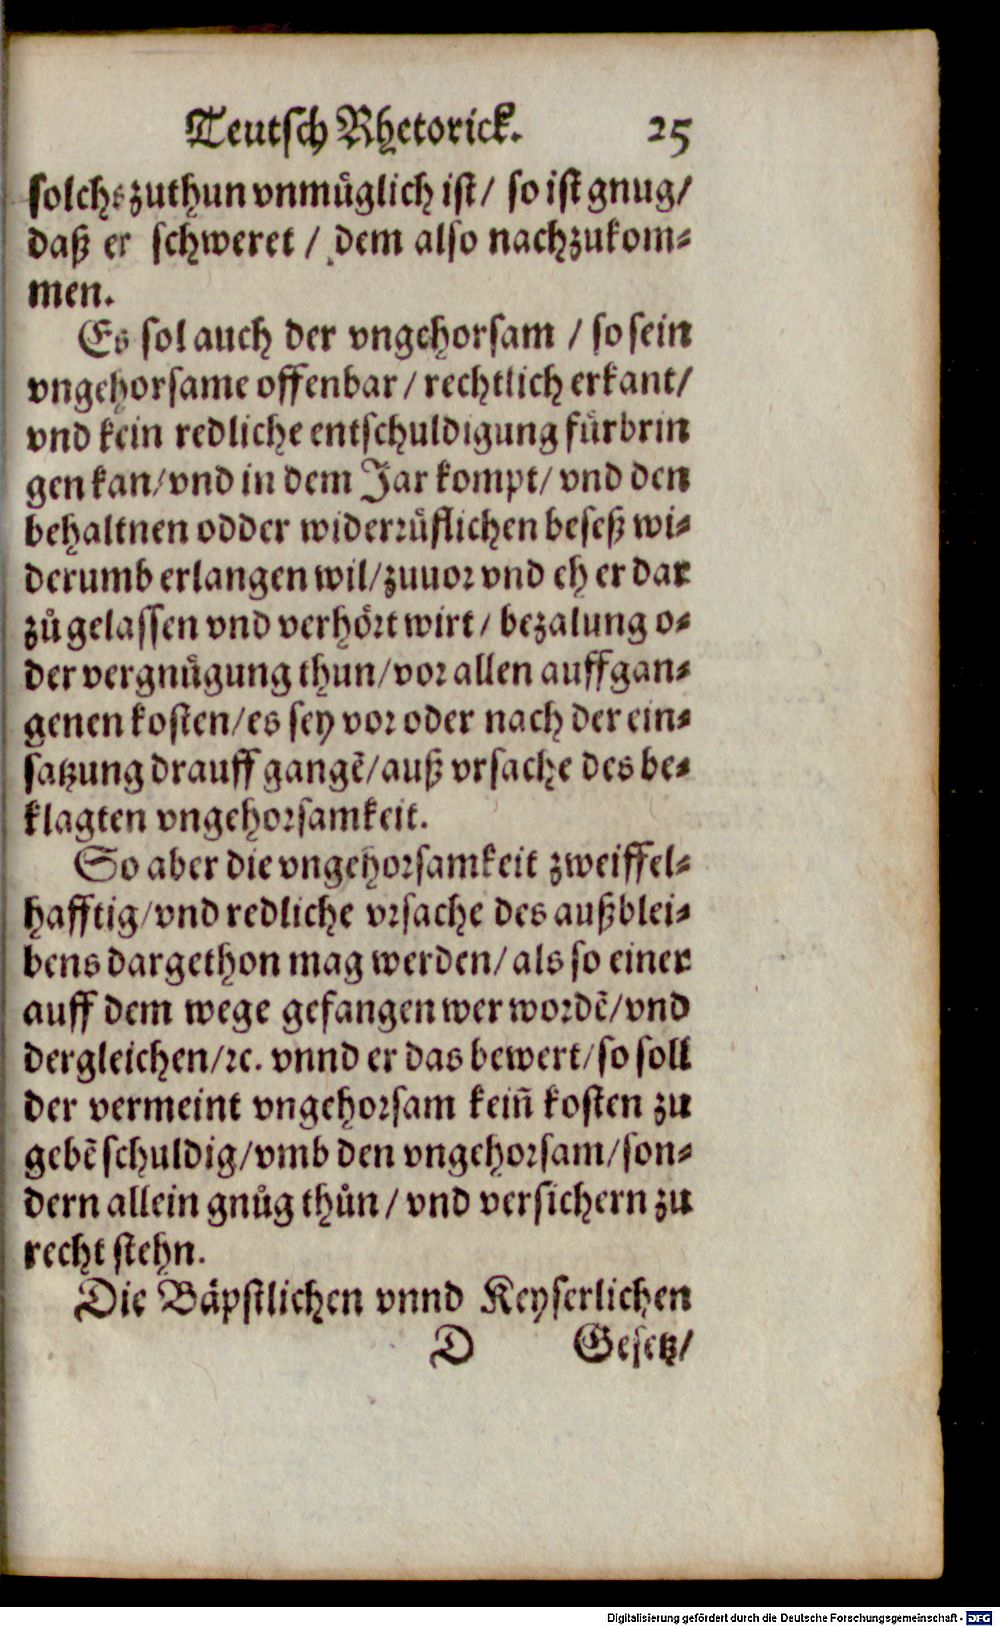 Teutsch Rhetorick. 25
solchs zuthun vnmuͤglich ist/ so ist gnug/
daß er schweret / dem also nachzukom-
men.
Es sol auch der vngehorsam / so sein
vngehorsame offenbar / rechtlich erkant/
vnd kein redliche entschuldigung fuͤrbrin
gen kan/vnd in dem Jar kompt/ vnd den
behaltnen odder widerruͤflichen beseß wi-
derumb erlangen wil/zuuor vnd eh er dar
zuͦ gelassen vnd verhoͤrt wirt / bezalung o-
der vergnuͤgung thun/vor allen auffgan-
genen kosten/es sey vor oder nach der ein-
satzung drauff gangẽ/auß vrsache des be-
klagten vngehorsamkeit.
So aber die vngehorsamkeit zweiffel-
hafftig/vnd redliche vrsache des außblei-
bens dargethon mag werden/als so einer
auff dem wege gefangen wer wordẽ/vnd
dergleichen/ꝛc. vnnd er das bewert/so soll
der vermeint vngehorsam keiñ kosten zu
gebẽ schuldig/vmb den vngehorsam/son-
dern allein gnuͦg thuͦn / vnd versichern zu
recht stehn.
Die Baͤpstlichen vnnd Keyserlichen
D Gesetz/
Digitalisierung gefördert durch die Deutsche Forschungsgemeinschaft - DFG